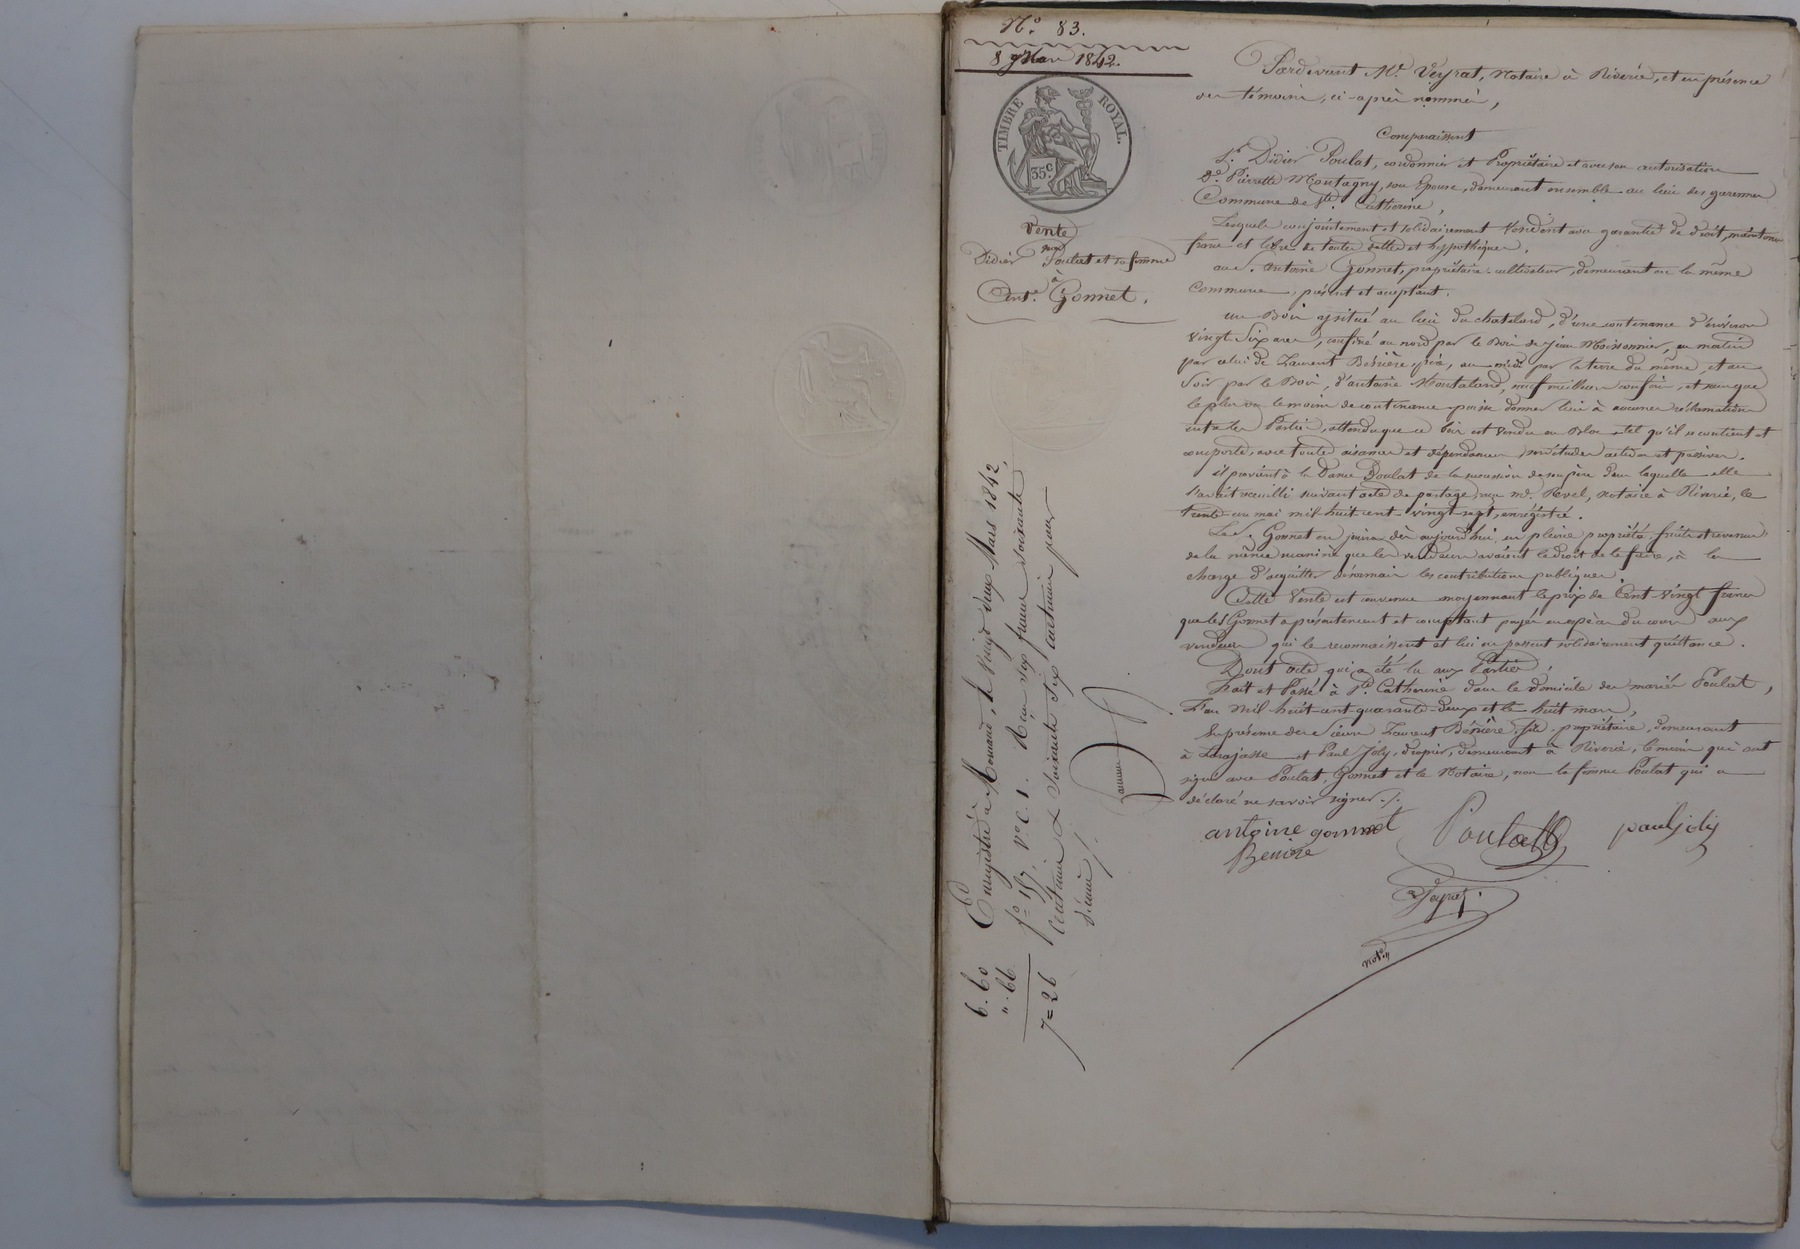 N.° 83.
8 Mars 1842.
TIMBRE ROYAL.
35 c
Vente
par
Didier Poulat et sa femme
à
Ant.e Gonnet.
Pardevant M.e Veyrat, Notaire à Riverie, et en présence
des témoins, ci-après nommés,
Comparaissent
S.r Didier Poulat, cordonnier et Propriétaire et avec son autorisation
D.e Pierrette Montagny, son Epouse, demeurant ensemble au lieu des garennes
Commune de Ste. Catherine,
Lesquels conjointement et solidairement Vendent avec garantie de droit, maintenue
franc et libre de toutes dettes et hypothèques,
au S. Antoine Gonnet, propriétaire cultivateur, demeurant en la même
Commune, présent et acceptant.
un Bois situé au lieu du chatelard, d'une contenance d'environ
Vingt Six ares, confiné au nord par le Bois de Jean Moissonnier, au matin
par celui de Laurent Bénière père, au midi par la terre du même, et au
Soir par le Bois, d'antoine Montaland, sauf meilleurs confins, et sans que
le plus ou le moins de contenance puisse donner lieu à aucunes réclamations
entre les Parties, attendu que ce bois est Vendu en Bloc tel qu'il se contient et
comporte, avec toutes aisances et dépendances, servitudes actives et passives.
il provient à la Dame Poulat de la succession de son père dans laquelle elle
l'avait recueilli suivant acte de partage, reçu Me. Revel, notaire à Riverie, le
trente un mai mil huit cent vingt sept, enrégistré.
Le S. Gonnet en jouira dès aujourd'hui, en pleine propriété fruits et revenus
de la même manière que les vendeurs avaient le droit de le faire, à la
charge d'acquitter désormais les contributions publiques.
Cette Vente est convenue moyennant le prix de Cent Vingt francs
que le S Gonnet a présentement et comptant payés en espèces du cours aux
vendeurs qui le reconnaissent et lui en passent solidairement quittance.
Dont acte qui a été lu aux Parties,
Fait et Passé à Ste. Catherine dans le domicile des mariés Poulat,
L'an Mil huit cent quarante deux et le huit mars,
En présence des Sieurs Laurent Bénière, fils, propriétaire, demeurant
à Larajasse et Paul Joly, drapier, demeurant à Riverie, témoins qui ont
signé avec Poulat, Gonnet et le Notaire, non la femme Poulat qui a
déclaré ne savoir signer./.
antoine gonnet Poulat paul joly
Beniere
Veyrat
not.e
Enregistré à Mornant, le Vingt deux Mars 1842,
f.° 157 V.° C. 1. Reçu six francs soixante
centimes & soixante six centimes pour
décime
6. 60
". 66
7 = 26